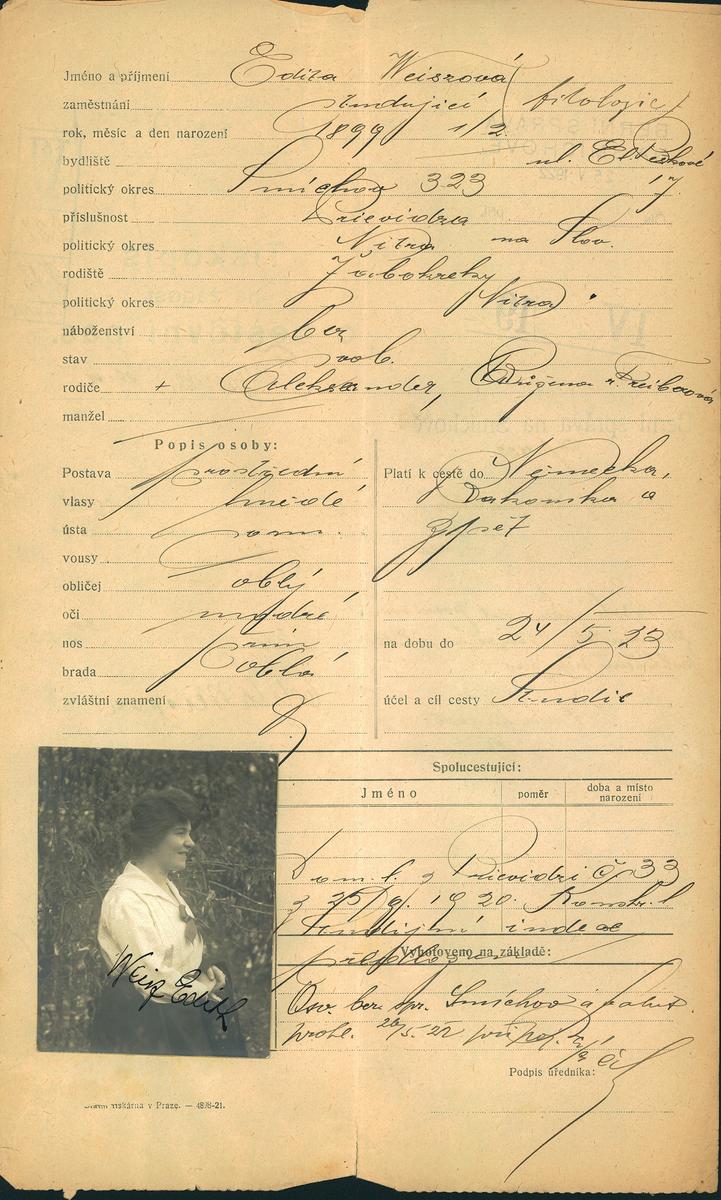 Jméno a příjmení Edita Weiszová
zaměstnání studující (filologie)
rok, měsíc a den narození 1899 1/2.
bydliště ul.
politický okres Smíchov 323
příslušnost Prievidza
politický okres Nitra na Slov.
rodiště Žabokreky
politický okres Nitra
náboženství bez
stav svob.
rodiče + Aleksander,
manžel
Popis osoby:
Postava prostřední
vlasy hnědé
ústa norm.
vousy
obličej oblý
oči modré
nos
brada oblá
zvláštní znamení
Platí k cestě do Německa,
Rakouska a
zpět
na dobu do 24/5. 23
účel a cíl cesty Studie
Spolucestující:
Jméno poměr doba a místo narození
Dom. l. z Prievidzi č 33
z 25/9. 1920.
Studijní index
předložen
Vyhotoveno na základě:
Osv. ber. spr. Smíchov a
proto. 20/5. 22
Podpis úředníka:
Weisz Edith
tiskárna v Praze. — 4898-21.